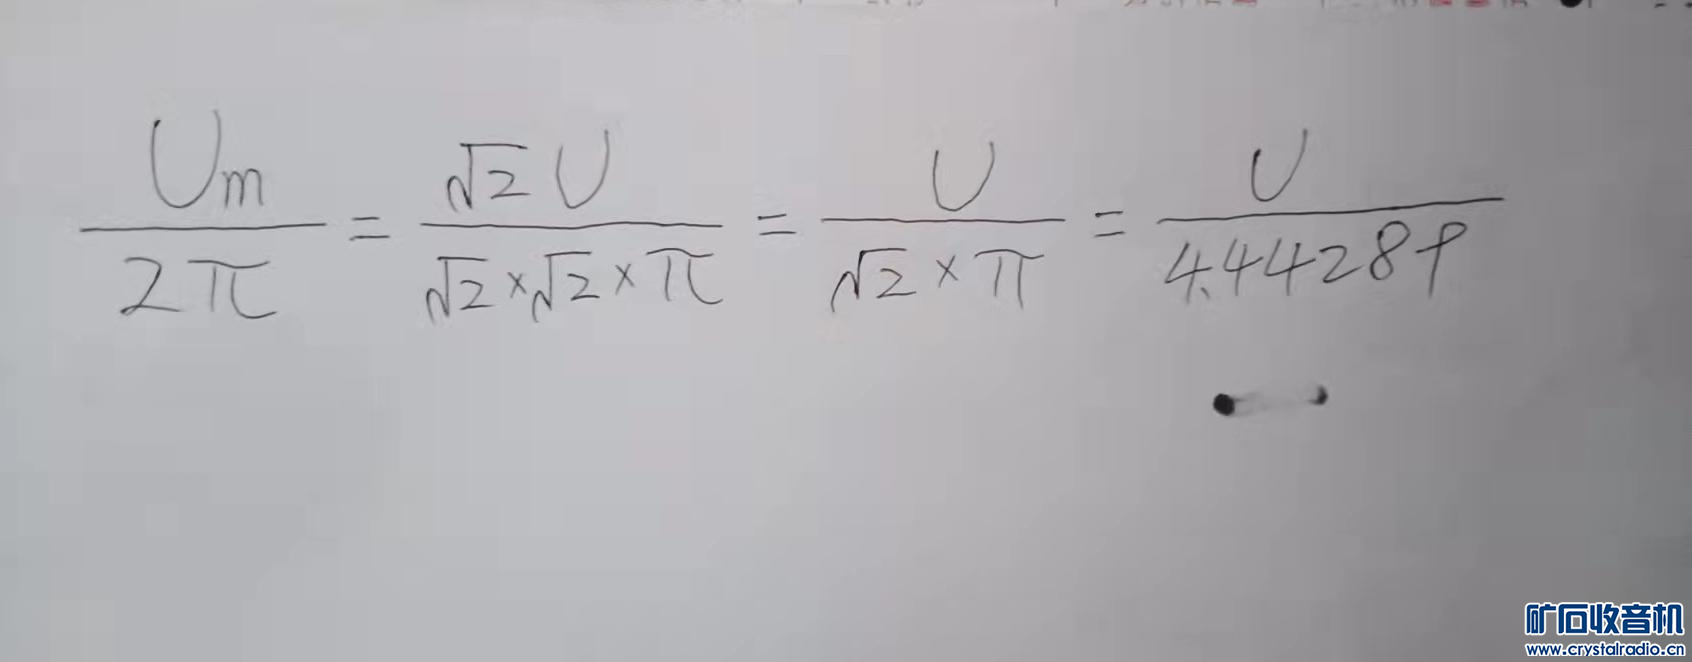 Um/2π = √2 U/√2×√2×π = U/√2×π = U/4.44289
矿石收音机
www.crystalradio.cn